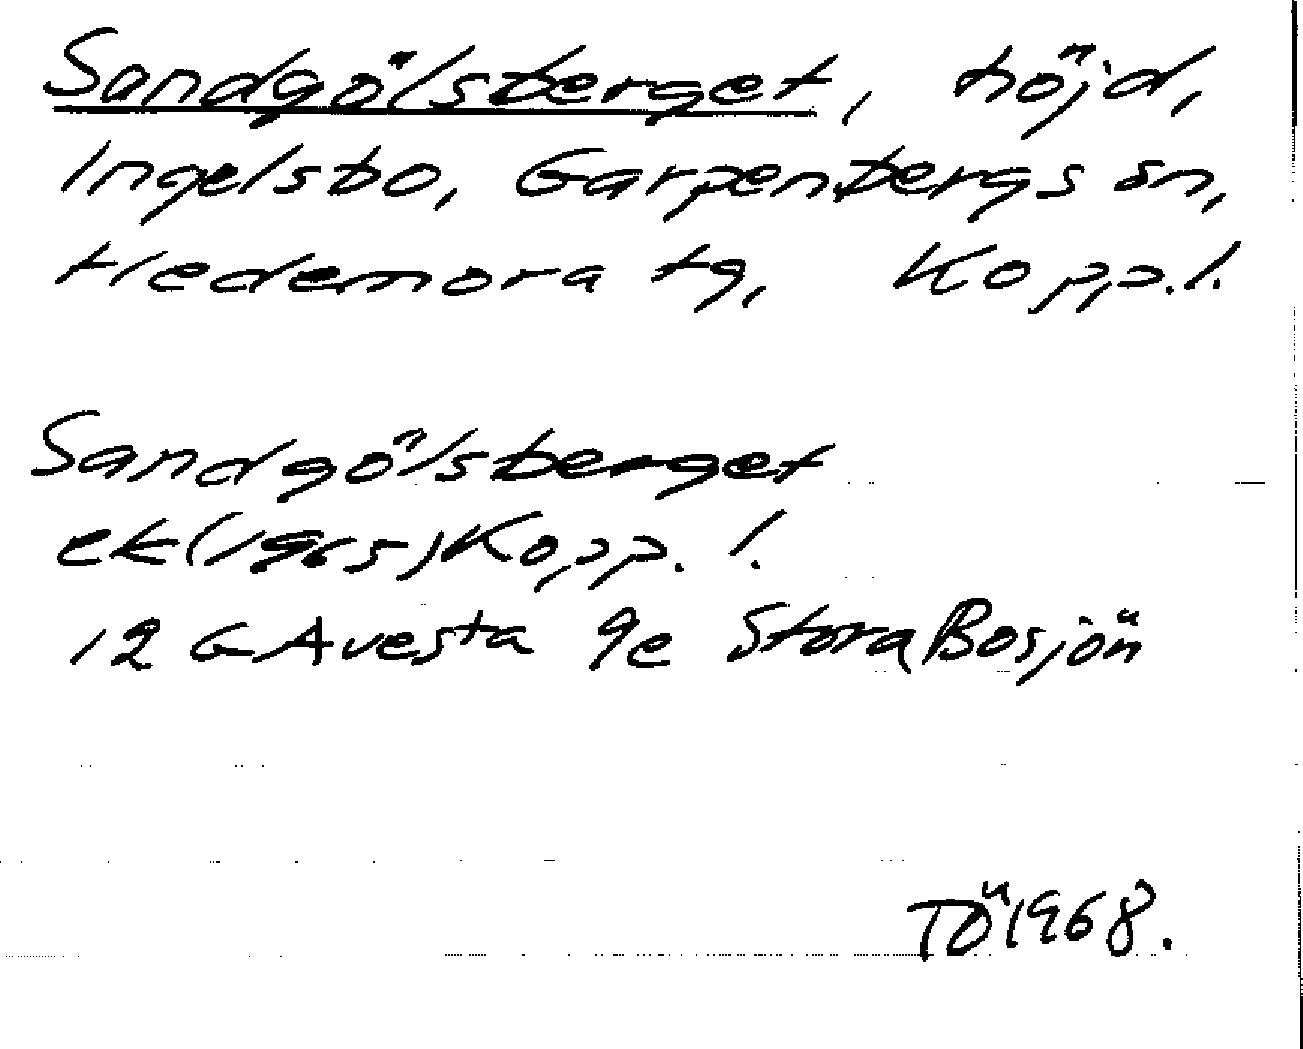 Sandgölsberget, höjd,
Ingelsbo, Garpenbergs sn,
Hedemora tg, Kopp.l.
Sandgölsberget
ek(1965)Kopp. l.
12 G Avesta 9e Stora Bosjön
TÖ 1968.